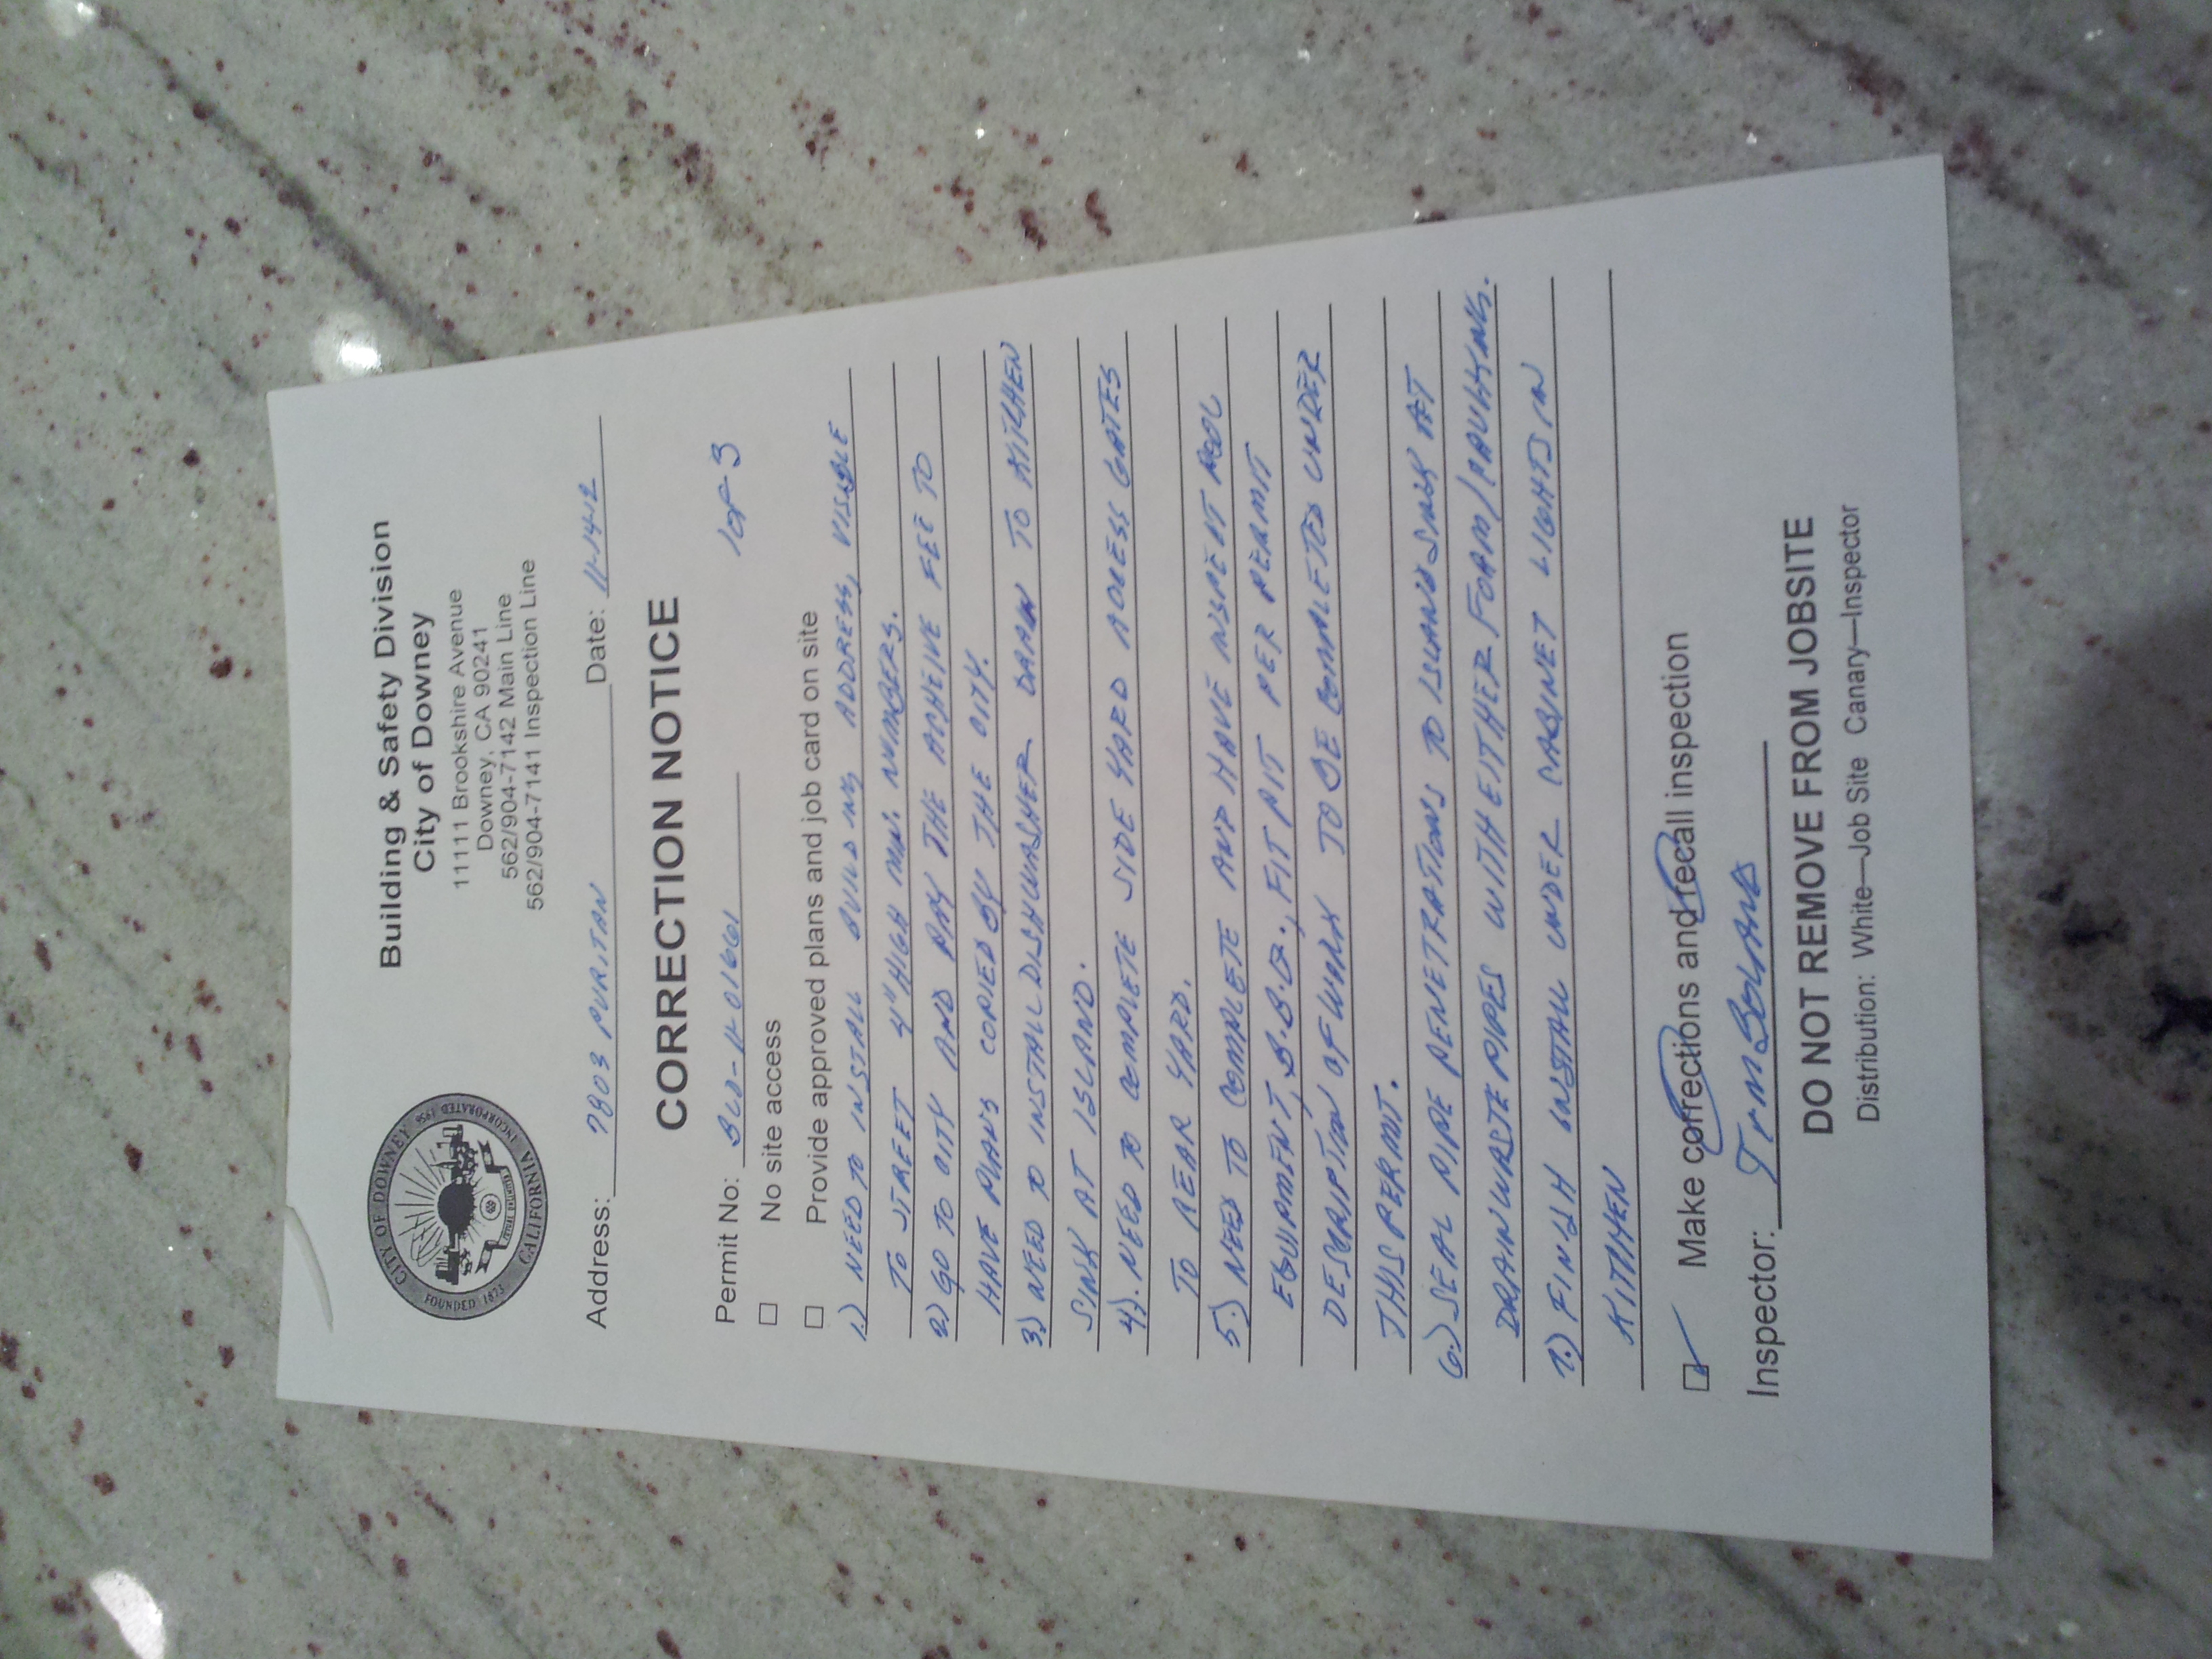 Building & Safety Division
City of Downey
11111 Brookshire Avenue
Downey, CA 90241
562/904-7142 Main Line
562/904-7141 Inspection Line
CITY OF DOWNEY
INCORPORATED 1956
FOUNDED 1873
CALIFORNIA
Address: 7803 PURITAN Date: 11-14-12
CORRECTION NOTICE
Permit No: BLD-11-01661 1 OF 3
No site access
Provide approved plans and job card on site
1.) NEED TO INSTALL BUILDING ADDRESS, VISABLE
TO STREET 4" HIGH MIN. NUMBERS.
2) GO TO CITY AND PAY THE ACHEIVE FEE TO
HAVE PLANS COPIED BY THE CITY.
3) NEED TO INSTALL DISHWASHER DRAIN TO KITCHEN
SINK AT ISLAND.
4). NEED TO COMPLETE SIDE YARD ACCESS GATES
TO REAR YARD.
5.) NEED TO COMPLETE AND HAVE INSPENT POOL
EQUIPMENT, B.B.Q., FIT PIT PER PERMIT
DESCRIPTION OF WORK TO BE COMPLETED UNDER
THIS PERMIT.
6.) SEAL PIPE PENETRATIONS TO ISLAND SINK AT
DRAIN WASTE PIPES WITH EITHER FOAM/CAULKING.
7.) FINISH INSTALL UNDER CABINET LIGHTS IN
KITCHEN
Make corrections and recall inspection
Inspector:
DO NOT REMOVE FROM JOBSITE
Distribution: White—Job Site Canary—Inspector